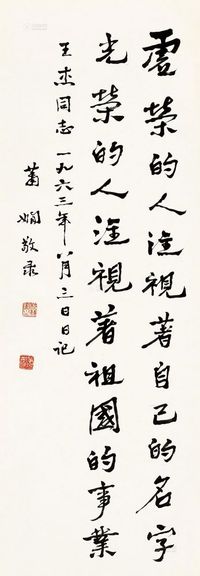 虚榮的人注視著自己的名字
光榮的人注視著祖國的事業
王杰同志一九六三年八月三日日记
蕭嫻敬录